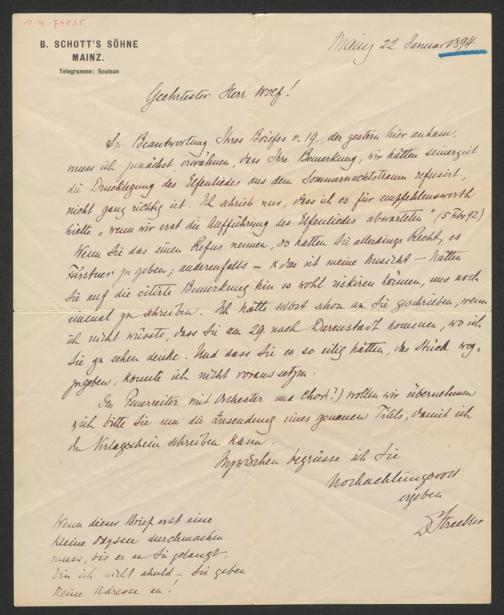 B. SCHOTT'S SÖHNE
MAINZ.
Telegramme: Scotson
Mainz 22 Januar 1894
Geehrtester Herr Wolf!
In Beantwortung Ihres Briefes v. 19., der gestern hier ankam,
muss ich zunächst erwähnen, dass Ihre Bemerkung, wir hätten seinerzeit
die Drucklegung des Elfenliedes aus dem Sommernachtstraum refusirt,
nicht ganz richtig ist. Ich schrieb nur, dass ich es für empfehlenswerth
hielte „wenn wir erst die Aufführung des Elfenliedes abwarteten" (5 92)
Wenn Sie das einen Refus nennen, so hatten Sie allerdings Recht, es
Fürstner zu geben; anderenfalls — & das ist meine Ansicht — hätten
Sie auf die citirte Bemerkung hin es wohl riskiren können, uns noch
einmal zu schreiben. Ich hätte selbst schon an Sie geschrieben, wenn
ich nicht wüsste, dass Sie am 29. nach Darmstadt kommen, wo ich
Sie zu sehen denke. Und dass Sie es so eilig hätten, das Stück weg-
zugeben, konnte ich nicht voraussetzen.
Den Feuerreiter mit Orchester und Chor(?) wollen wir übernehmen
& ich bitte Sie um die Zusendung eines genauen Titels, damit ich
den Verlagschein schreiben kann.
Inzwischen begrüsse ich Sie
Hochachtungsvoll
ergeben
Strecker
Wenn dieser Brief erst eine
kleine Odyssee durchmachen
muss, bis er an Sie gelangt,
bin ich nicht schuld — Sie geben
keine Adresse an!